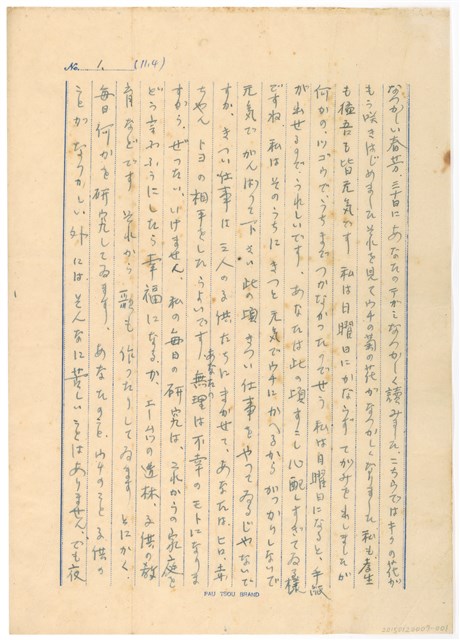 No. 1. (11.4)
なつかしい春芳、三十日にあなたのテガミなつかしく讀みました、こちらではキクの花が
もう咲きはじめましたそれを見てウチの菊の花がなつかしくなりました 私も孝生
も極吾も皆元気です 私は日曜日にかならずてがみを出しましたが
何かの、ツゴウで、うちまでつかなかつたのでせう 私は日曜日になると、手紙
が出せるので、うれしいです。あなたは此の頃すこし心配しすぎてゐる樣
ですね、私はそのうちにきつと元気でウチにかへるからがつかりしないで
元気でがんばつて下さい 此の頃きつい仕事をやつてゐるじやないで
すか、きつい仕事は三人の子供たちにまかせて、あなたは、ヒロ、サ
ちやん トヨの相手をしたらよいです あなたの無理は不幸のモトになりま
すから、ぜつたい、いけません、私の毎日の研究は、これからの家庭を
どう言ふふうにしたら幸福になるか、山の造林、子供の教
育などです それから歌も作つたりしてゐます とにかく、
毎日何かを研究してゐます、あなたのこと、ウチのこと子供の
ことがなつかしい外には、そんなに苦しいことはありません、でも夜
PAU TSOU BRAND